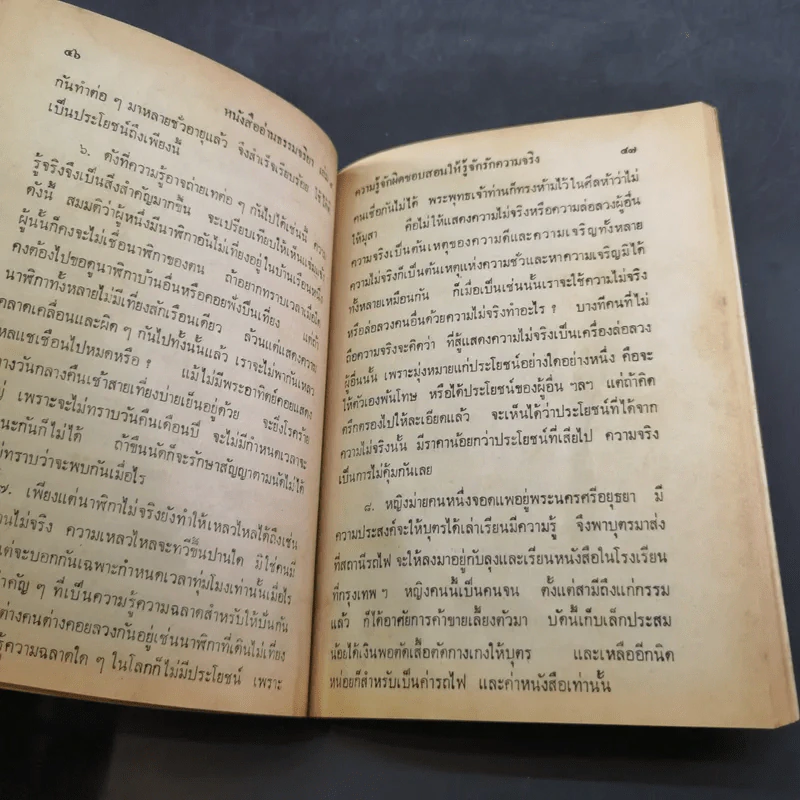 ๔๖
หนังสืออ่านธรรมจริยา
กันทำต่อ ๆ มาหลายชั่วอายุแล้ว จึงสำเร็จเรียบร้อย
เป็นประโยชน์ถึงเพียงนี้
๖. ดังที่ความรู้อาจถ่ายเทต่อ ๆ กันไปได้เช่นนี้ ความ
รู้จริงจึงเป็นสิ่งสำคัญมากขึ้น จะเปรียบเทียบให้เห็น
ดังนี้ สมมติว่าผู้หนึ่งมีนาฬิกาอันไม่เที่ยงอยู่ในบ้านเรือนหนึ่ง
ผู้นั้นก็คงจะไม่เชื่อนาฬิกาของตน ถ้าอยากทราบเวลาเมื่อใด
คงต้องไปขอดูนาฬิกาบ้านอื่นหรือคอยฟังปืนเที่ยง แต่ถ้า
นาฬิกาทั้งหลายไม่มีเที่ยงสักเรือนเดียว ล้วนแต่แสดงความ
คลาดเคลื่อนและผิด ๆ กันไปทั้งนั้นแล้ว เราจะไม่พากันเหลว
ไหลแชเชือนไปหมดหรือ ? แม้ไม่มีพระอาทิตย์คอยแสดง
กลางวันกลางคืนเช้าสายเที่ยงบ่ายเย็นอยู่ด้วย จะยิ่งโรคร้าย
เพราะจะไม่ทราบวันคืนเดือนปี จะไม่มีกำหนดเวลาจะ
นะกันก็ไม่ได้ ถ้าขืนนัดก็จะรักษาสัญญาตามนัดไม่ได้
ทราบว่าจะพบกันเมื่อไร
๗. เพียงแต่นาฬิกาไม่จริงยังทำให้เหลวไหลได้ถึงเช่น
ไม่จริง ความเหลวไหลจะทวีขึ้นปานใด มิใช่คนมี
แต่จะบอกกันเฉพาะกำหนดเวลาทุ่มโมงเท่านั้นเมื่อไร
สำคัญ ๆ ที่เป็นความรู้ความฉลาดสำหรับให้ปันกัน
ต่างคนต่างคอยลวงกันอยู่เช่นนาฬิกาที่เดินไม่เที่ยง
ความฉลาดใด ๆ ในโลกก็ไม่มีประโยชน์ เพราะ
ความรู้จักผิดชอบสอนให้รู้จักรักความจริง
๔๗
คนเชื่อกันไม่ได้ พระพุทธเจ้าท่านก็ทรงห้ามไว้ในศีลห้าว่าไม่
ให้มุสา คือไม่ให้แสดงความไม่จริงหรือความล่อลวงผู้อื่น
ความจริงเป็นต้นเหตุของความดีและความเจริญทั้งหลาย
ความไม่จริงก็เป็นต้นเหตุแห่งความชั่วและหาความเจริญมิได้
ทั้งหลายเหมือนกัน ก็เมื่อเป็นเช่นนั้นเราจะใช้ความไม่จริง
หรือล่อลวงคนอื่นด้วยความไม่จริงทำอะไร ? บางทีคนที่ไม่
ถือความจริงจะคิดว่า ที่สู้แสดงความไม่จริงเป็นเครื่องล่อลวง
ผู้อื่นนั้น เพราะมุ่งหมายแก่ประโยชน์อย่างใดอย่างหนึ่ง คือจะ
ให้ตัวเองพ้นโทษ หรือได้ประโยชน์ของผู้อื่น ฯลฯ แต่ถ้าคิด
ตรึกตรองไปให้ละเอียดแล้ว จะเห็นได้ว่าประโยชน์ที่ได้จาก
ความไม่จริงนั้น มีราคาน้อยกว่าประโยชน์ที่เสียไป ความจริง
เป็นการไม่คุ้มกันเลย
๘. หญิงม่ายคนหนึ่งจอดแพอยู่พระนครศรีอยุธยา มี
ความประสงค์จะให้บุตรได้เล่าเรียนมีความรู้ จึงพาบุตรมาส่ง
ที่สถานีรถไฟ จะให้ลงมาอยู่กับลุงและเรียนหนังสือในโรงเรียน
ที่กรุงเทพ ฯ หญิงคนนี้เป็นคนจน ตั้งแต่สามีถึงแก่กรรม
แล้ว ก็ได้อาศัยการค้าขายเลี้ยงตัวมา บัดนี้เก็บเล็กประสม
น้อยได้เงินพอตัดเสื้อตัดกางเกงให้บุตร และเหลืออีกนิด
หน่อยก็สำหรับเป็นค่ารถไฟ และค่าหนังสือเท่านั้น